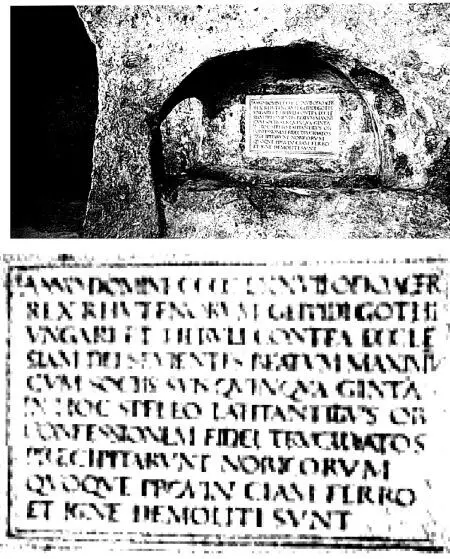 ANNO DOMINI CCCC LXXVII ODOACER
REX RHVTENORVM GEPIDI GOTHI
VNGARI ET HERVLI CONTRA ECCLE
SIAM DEI SEVIENTES BEATVM MAXIMV
CVM SOCIIS SVIS QVINQVAGINTA
IN HOC SPELEO LATITANTIBVS OB
CONFESSIONEM FIDEI TRVCIDATOS
PRECIPITARVNT NORICORVM
QVOQVE PROVINCIAM FERRO
ET IGNE DEMOLITI SVNT